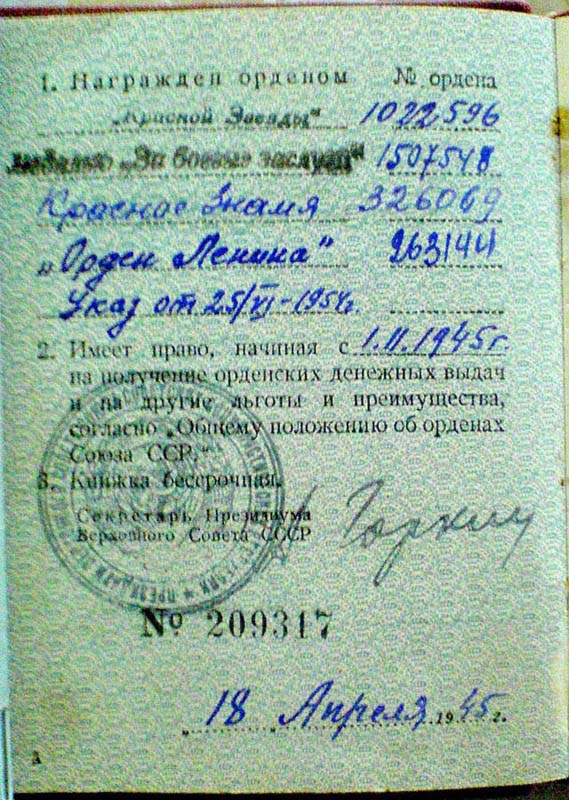 1. Награжден орденом № ордена
„Красной Звезды“ 1022596
медалью „За боевые заслуги“ 1507548
Красное Знамя 326069
„Орден Ленина“ 263144
Указ от 25/VI-1954г.
2. Имеет право, начиная с 1.II.1945г.
на получение орденских денежных выдач
и на другие льготы и преимущества,
согласно „Общему положению об орденах
Союза ССР.“
3. Книжка бессрочная.
Секретарь Президиума
Верховного Совета СССР
Горкин
№ 209317
„18 „ Апреля 1945 г.
А